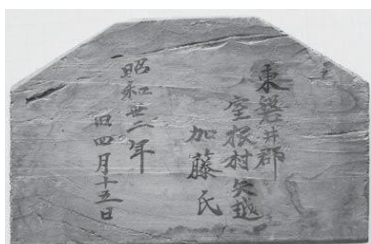 東磐井郡
室根村矢越
加藤氏
昭和卅二年
旧四月十五日